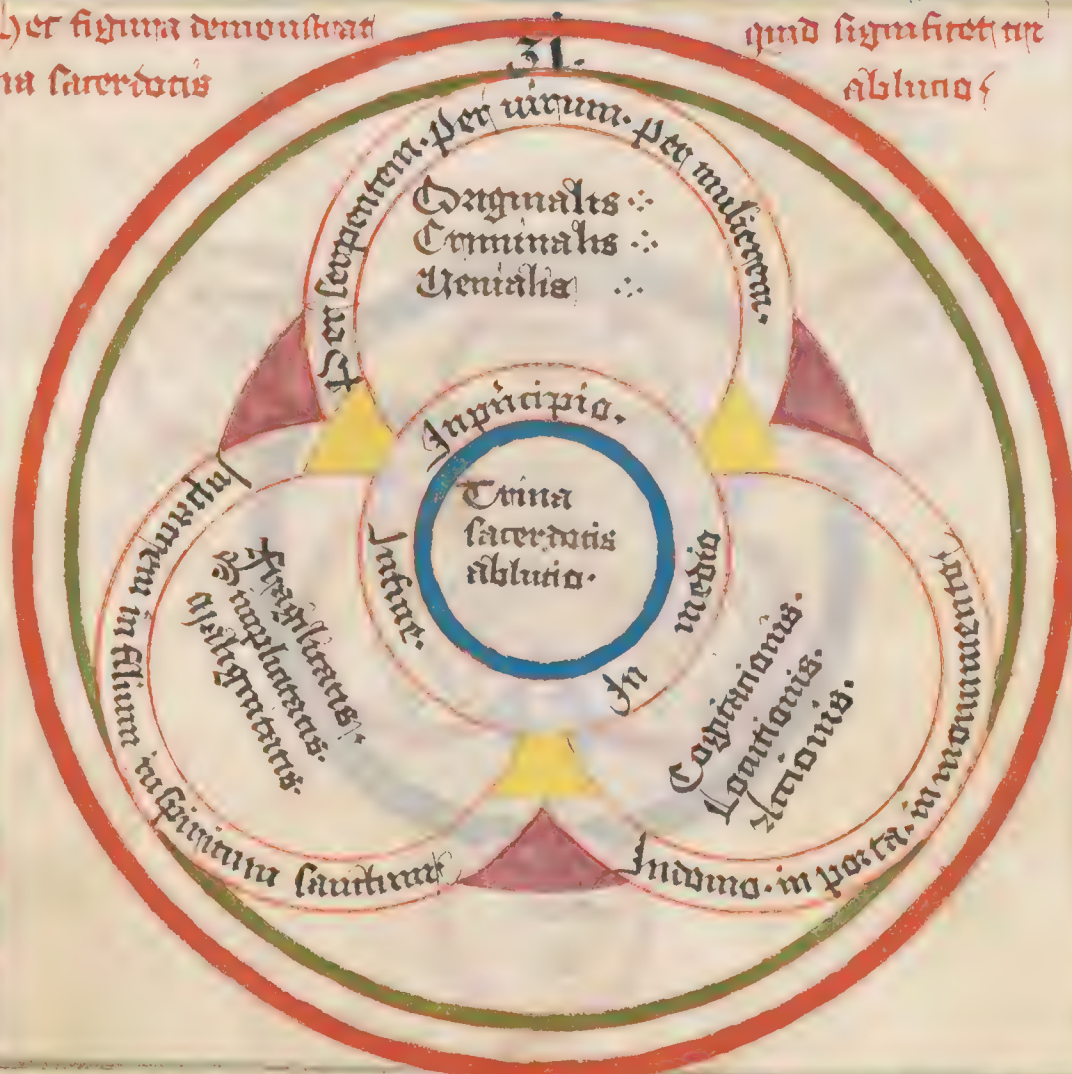 Hec figura demonstrat quid significet tri
na sacerdotis ablutio
31.
Per serpentem. per uirum. per mulierem.
Originalis
Criminalis
Uenialis
Inpricipio.
In medio
Infine.
Trina
sacerdotis
ablutio.
Inpatrem in filium inspiritum sanctum
Fragilitatis.
Simplicitatis.
Malignitatis.
Cogitationis.
Locutionis.
Actionis.
Indomo. in porta. in monumento.